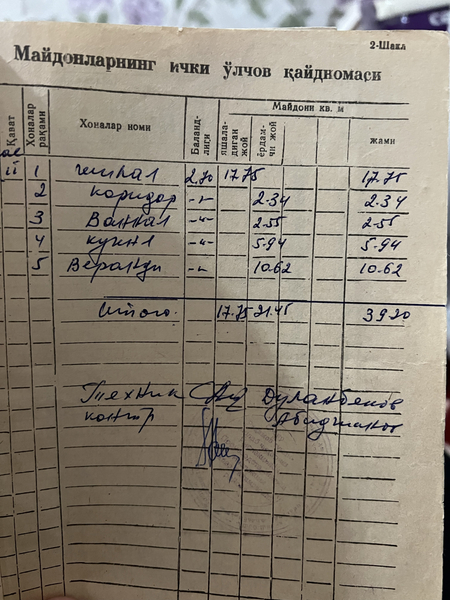 2-Шакл
Майдонларнинг ички ўлчов қайдномаси
Қават
Хоналар рақами
Хоналар номи
Баланд-лиги
Майдони кв. м
яшала-диган жой
ёрдам-чи жой
жами
1 жилая 2.70 17.75 17.75
2 коридор -"- 2.34 2.34
3 Ванная -"- 2.55 2.55
4 кухня -"- 5.94 5.94
5 Веранда -"- 10.62 10.62
Итого. 17.75 21.45 39.20
Техник Дуланбеков
контр Абиджанов